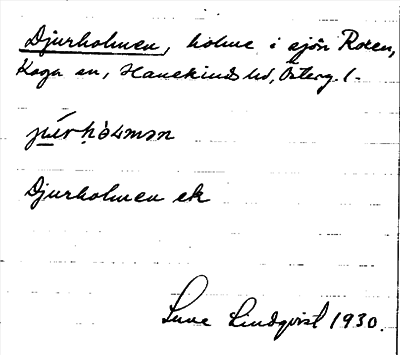 Djurholmen, holme i sjön Roxen,
Kaga sn, Hanekinds hd, Österg. l.
Djurholmen ek
Sune Lindqvist 1930.